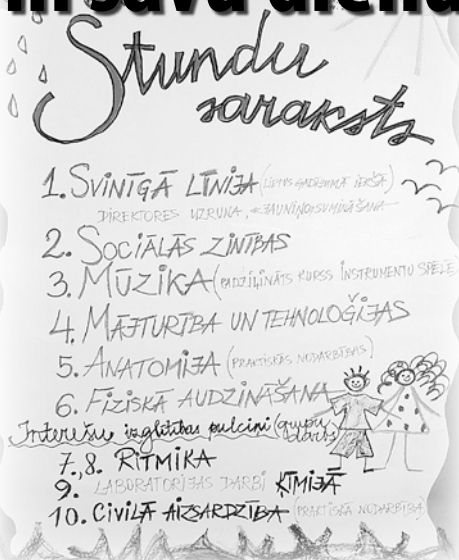 savu
Stundu
saraksts
1. SVINĪGĀ LĪNIJA (LIETUS GADĪJUMĀ IEKŠĀ)
DIREKTORES UZRUNA, JAUNIŅO SUMINĀŠANA
2. SOCIĀLĀS ZINĪBAS
3. MŪZIKA (PADZIĻINĀTS KURSS INSTRUMENTU SPĒLĒ
4. MĀJTURĪBA UN TEHNOLOĢIJAS
5. ANATOMIJA (PRAKTISKĀS NODARBĪBAS)
6. FIZISKĀ AUDZINĀŠANA
Interešu izglītības pulciņi (grupu darbs)
7., 8. RITMIKA
9. LABORATORIJAS DARBI ĶĪMIJĀ
10. CIVILĀ AIZSARDZĪBA (PRAKTISKĀ NODARBĪBA)